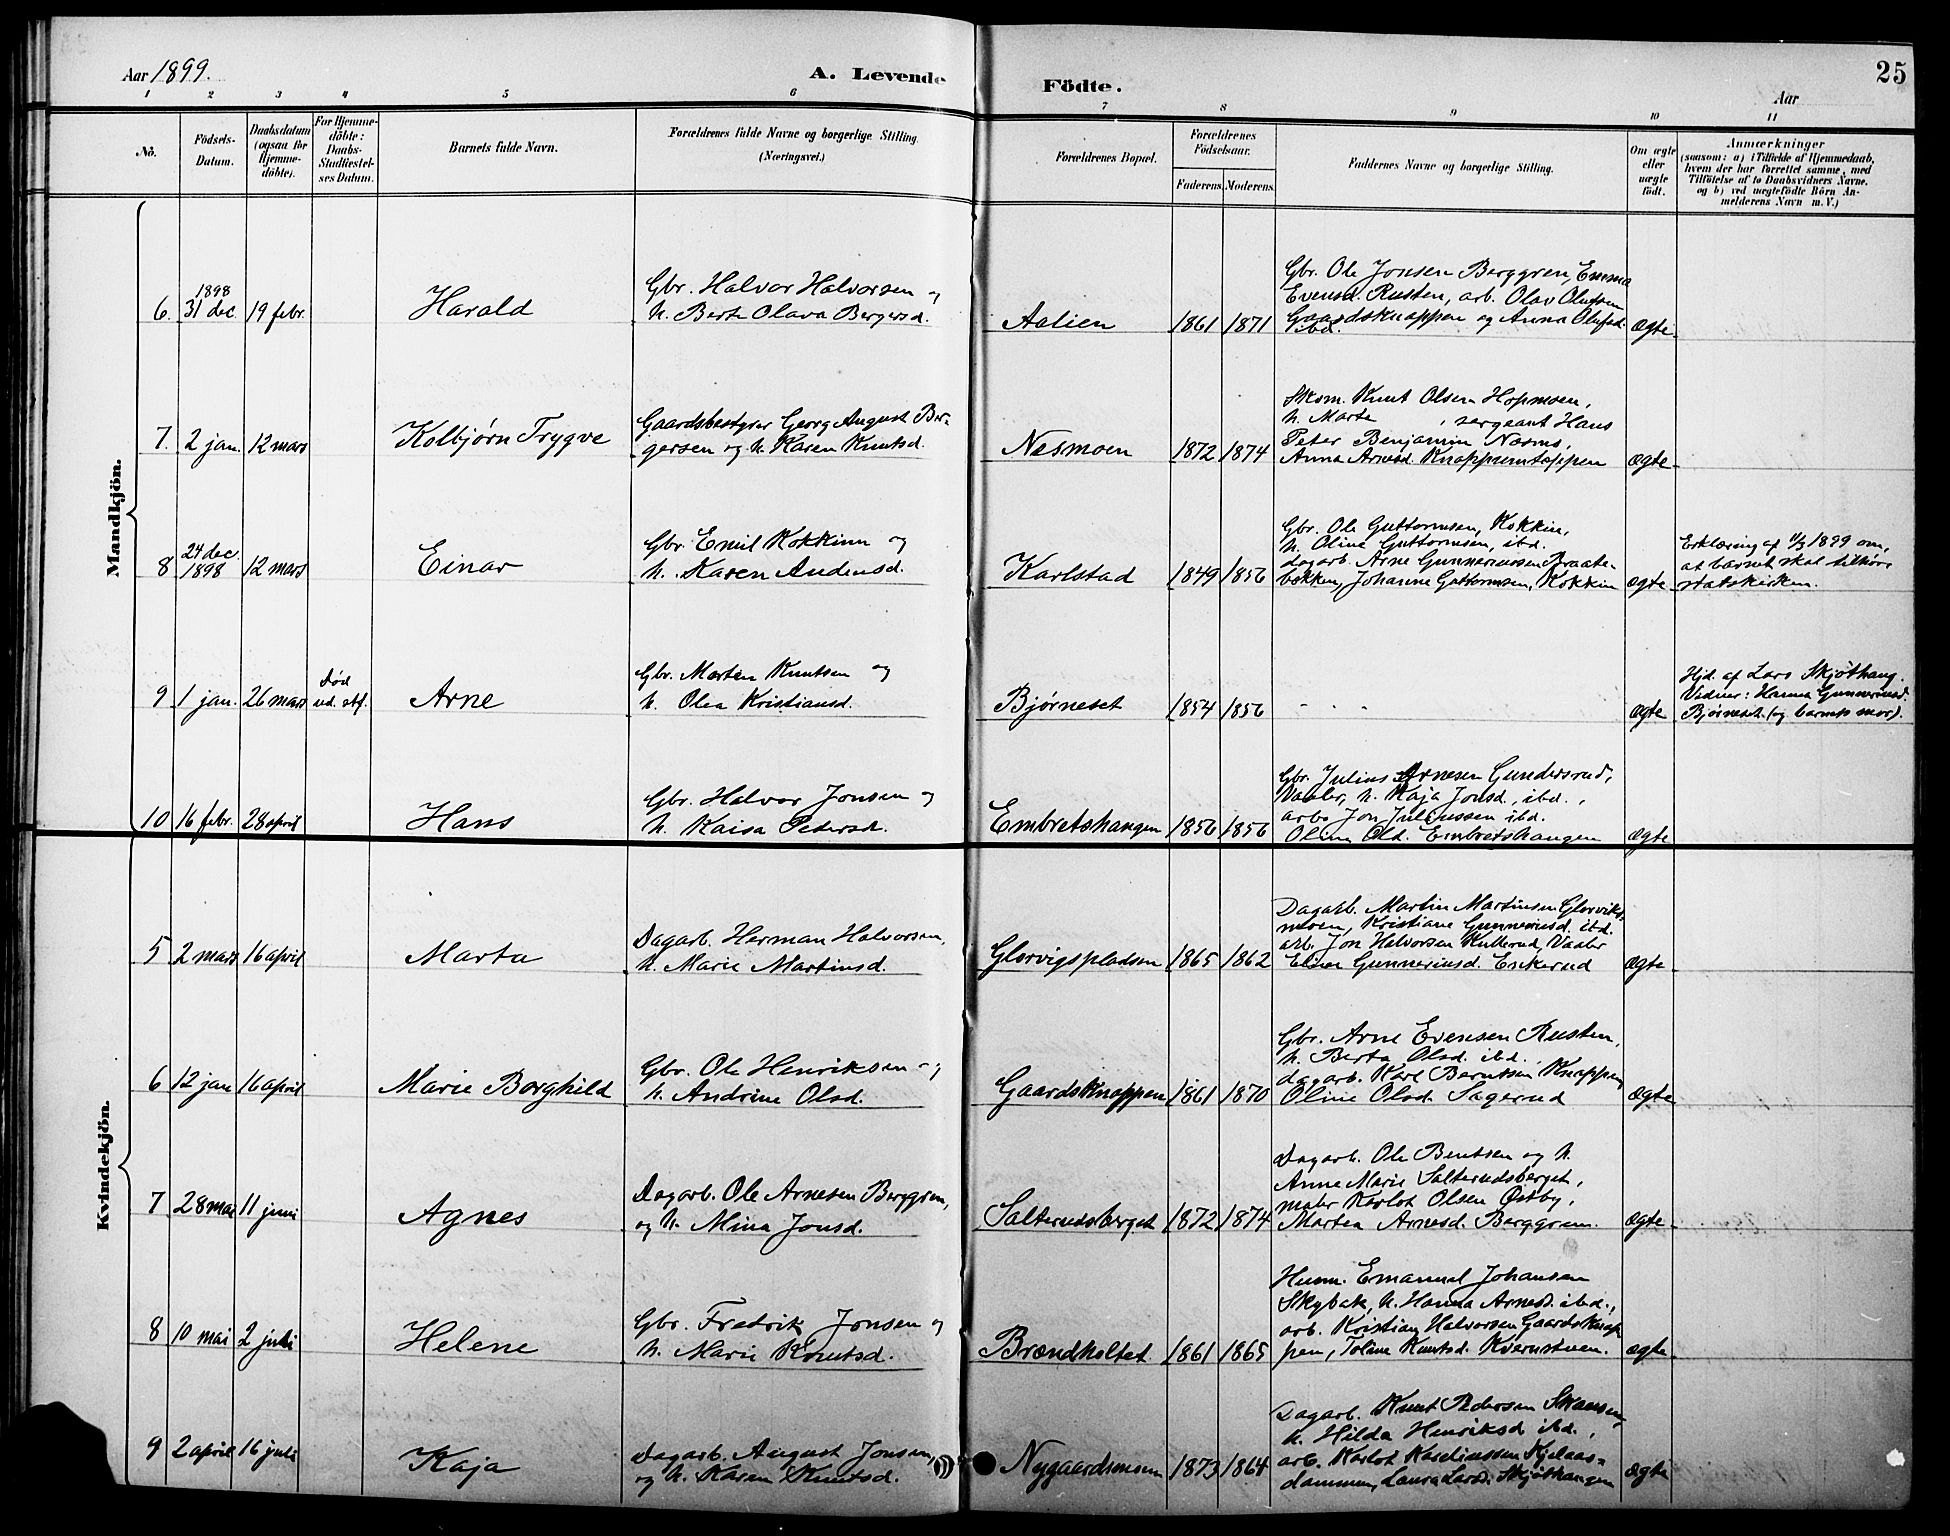 Aar 1899.
A. Levende Födte.
25
Aar
1 2 3 4 5 6 7 8 9 10 11
No.
Födsels-
Datum.
Daabsdatum
(ogsaa for
Hjemme-
döbte).
For Hjemme-
döbte:
Daabs-
Stadfæstel-
ses Datum.
Barnets fulde Navn.
Forældrenes fulde Navne og borgerlige Stilling.
(Næringsvei.)
Forældrenes Bopæl.
Forældrenes
Födselsaar.
Faderens. Moderens.
Faddernes Navne og borgerlige Stilling.
Om ægte
eller
uægte
födt.
Anmærkninger
(saasom: a) i Tilfælde af Hjemmedaab,
hvem der har forrettet samme, med
Tilföielse af to Daabsvidners Navne.
og b) ved uægtefödte Börn An-
melderens Navn m. V.)
Mandkjön.
6. 1898
31 dec. 19 febr. Harald
Gbr. Halvor Halvorsen og
h. Berte Olava Bergersd.
Aalien 1861 1871
Gbr. Ole Jonsen Berggren, Emma
Evensd. Rusten, arb. Olav Olufsen
Gaardsknappen og Anna Olufsd.
ibd.
ægte
7. 2 jan. 12 mars Kolbjørn Trygve
Gaardsbestyrer Georg August Ber-
gersen og h. Karen Knutsd.
Nesmoen 1872 1874
Skom. Knut Olsen Hopmoen,
h. Marte , sergeant Hans
Peter Benjamin
Anna Arnesd.
ægte
8 24 dec.
1898 12 mars Einar
Gbr. Emil Kokkinn og
h. Karen Andersd.
Karlstad 1849 1856
Gbr. Ole Guttormsen, Kokkin,
h. Oline Guttormsen, ibd.
dagarb. Arne Gunneriussen Braate-
bakken, Johanne Guttormsen, Kokkin
ægte
Erklæring af 1/3 1899 om,
at barnet skal tilhøre
statskirken.
9 1 jan. 26 mars Død
ud. stf. Arne
Gbr. Morten Knutsen og
h. Olea Kristiansd.
Bjørneset 1854 1856 - - -
ægte
Hjd. af Lars Skjøthaug.
Vidner: Hanna Gunneriusd.
Bjørneset (og barnets mor).
10 16 febr. 28 april Hans
Gbr. Halvor Jonsen og
h. Kaisa Pedersd.
Embretshaugen 1856 1856
Gbr. Julius Arnesen Gundersrud,
Vaaler, h. Kaja Jonsd., ibd.,
arb. Jon Juliussen ibd.
Oline Olsd. Embretshaugen
ægte
Kvindekjön.
5 2 mars 16 april Marta
Dagarb. Herman Halvorsen,
h. Marie Martinsd.
Glorvigspladsen 1865 1862
Dagarb. Martin Martinsen Glorviks-
moen, Kristiane Gunneriusd. ibd.
arb. Jon Halvorsen Kullerud, Vaaler
Elina Gunneriusd. Erikerud
ægte
6 12 jan 16 april Marie Borghild
Gbr. Ole Henriksen og
h. Andrine Olsd.
Gaardsknappen 1861 1870
Gbr. Arne Evensen Rusten,
h. Berta Olsd. ibd.
dagarb. Karl Berntsen Knappen
Oline Olsd. Sagerud
ægte
7 28 mai 11 juni Agnes
Dagarb. Ole Arnesen Berggren,
og h. Mina Jonsd.
Salterudsberget 1872 1874
Dagarb. Ole Bentsen og h.
Anne Marie Salterudsberget,
maler Karlot Olsen Østby,
Martea Arnesd. Berggren.
ægte
8 10 mai 2 juli Helene
Gbr. Fredrik Jonsen og
h. Marie Knutsd.
Brændholtet 1861 1865
Husm. Emanuel Johansen
Skybak, h. Hanna Arnesd. ibd.,
arb. Kristian Halvorsen Gaardsknap
pen, Toline Knutsd. Kvernstuen.
ægte
9 2 april 16 juli Kaja
Dagarb. August Jonsen,
og h. Karen Knutsd.
Nygaardsmoen 1873 1864
Dagarb. Knut Pedersen Skansen,
h. Hilda Henriksd. ibd.,
arb. Karlot Kareliussen Kjelaas-
dammen, Laura Larsd. Skjøthaugen
ægte